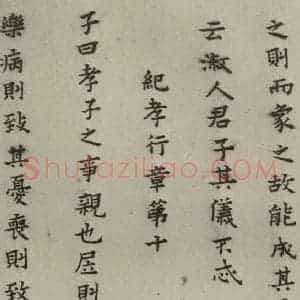 之則而象之故能成其
云淑人君子其儀不忒
紀孝行章第十
子曰孝子之事親也居則
樂病則致其憂喪則致
Shufaziliao.COM